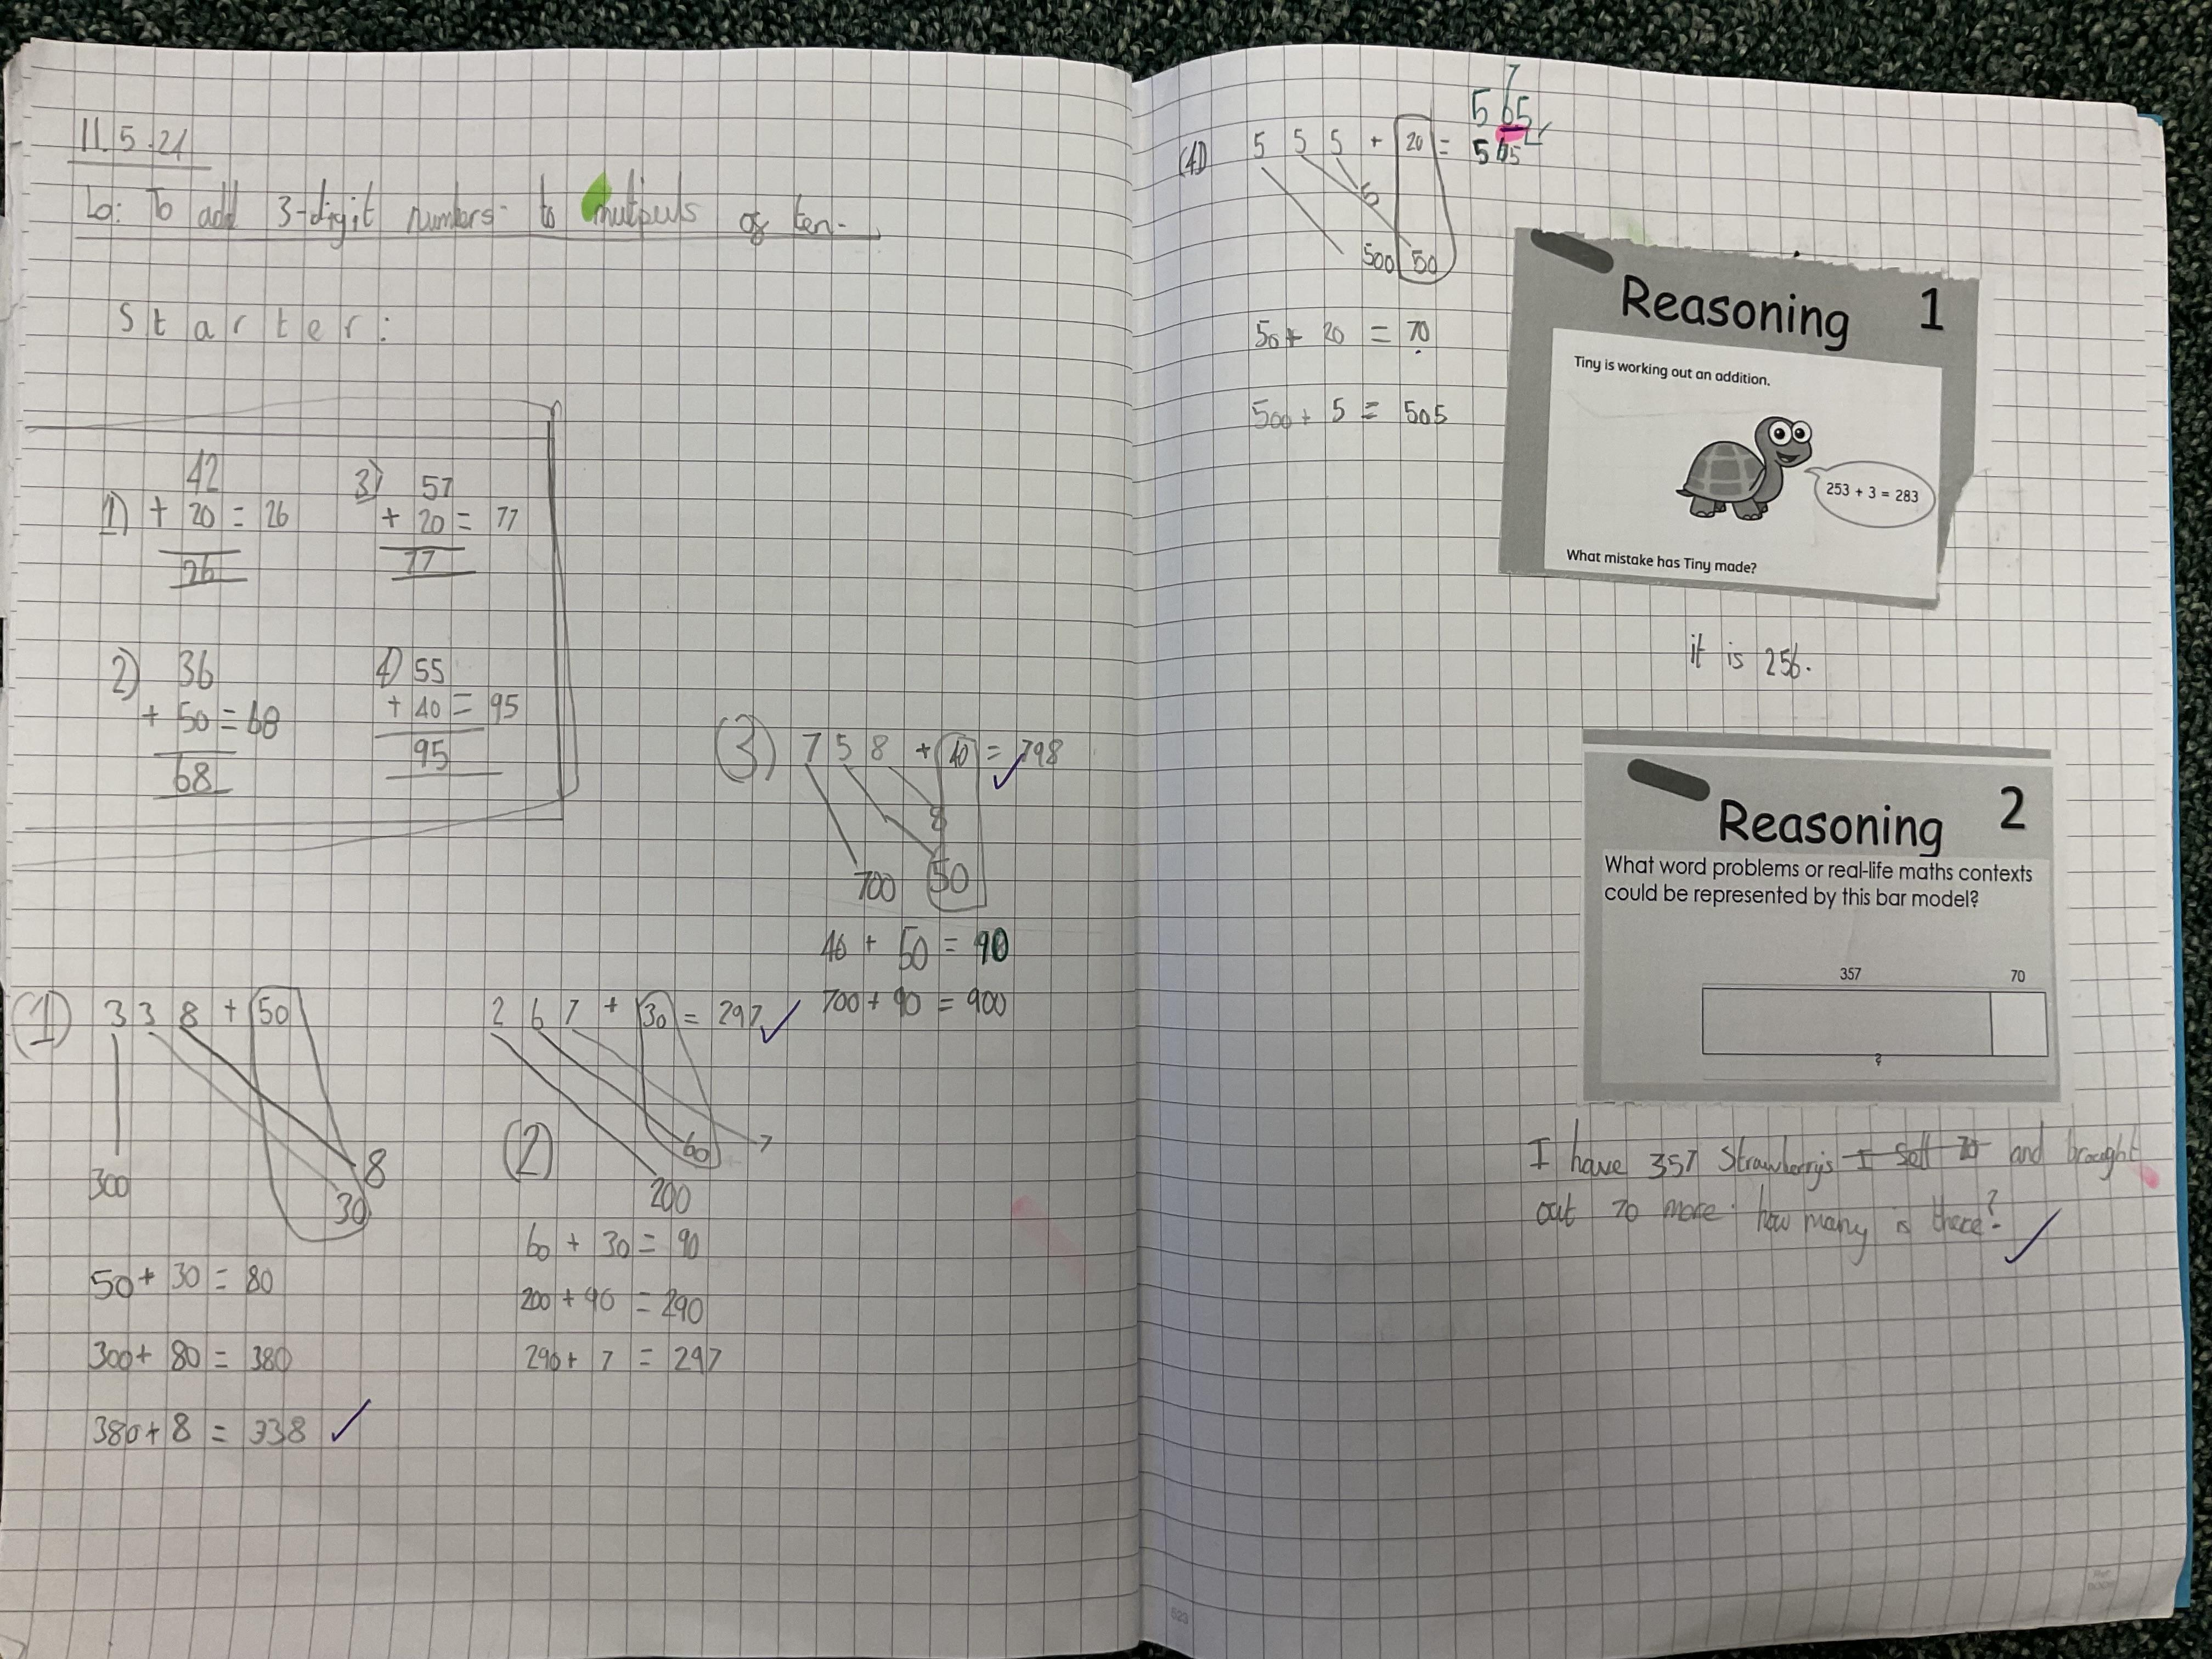 11.5.21
Lo: To add 3-digit numbers to mutipuls of ten.
Starter:
42
1) + 20 = 26
26
3) 57
+ 20 = 77
77
2) 36
+ 50 = 68
68
4) 55
+ 40 = 95
95
(1) 338 + 50
300
8
30
50 + 30 = 80
300 + 80 = 380
380 + 8 = 338
267 + 30 = 297
(2)
60
7
200
60 + 30 = 90
200 + 90 = 290
290 + 7 = 297
(3) 758 + 40 = 798
8
700 50
40 + 50 = 90
700 + 90 = 900
7
565
(4) 555 + 20 = 565
5
500 50
50 + 20 = 70
500 + 5 = 505
Reasoning 1
Tiny is working out an addition.
253 + 3 = 283
What mistake has Tiny made?
it is 256.
Reasoning 2
What word problems or real-life maths contexts
could be represented by this bar model?
357 70
?
I have 357 Strawberrys I sell 70 and brought
out 70 more. how many is there?